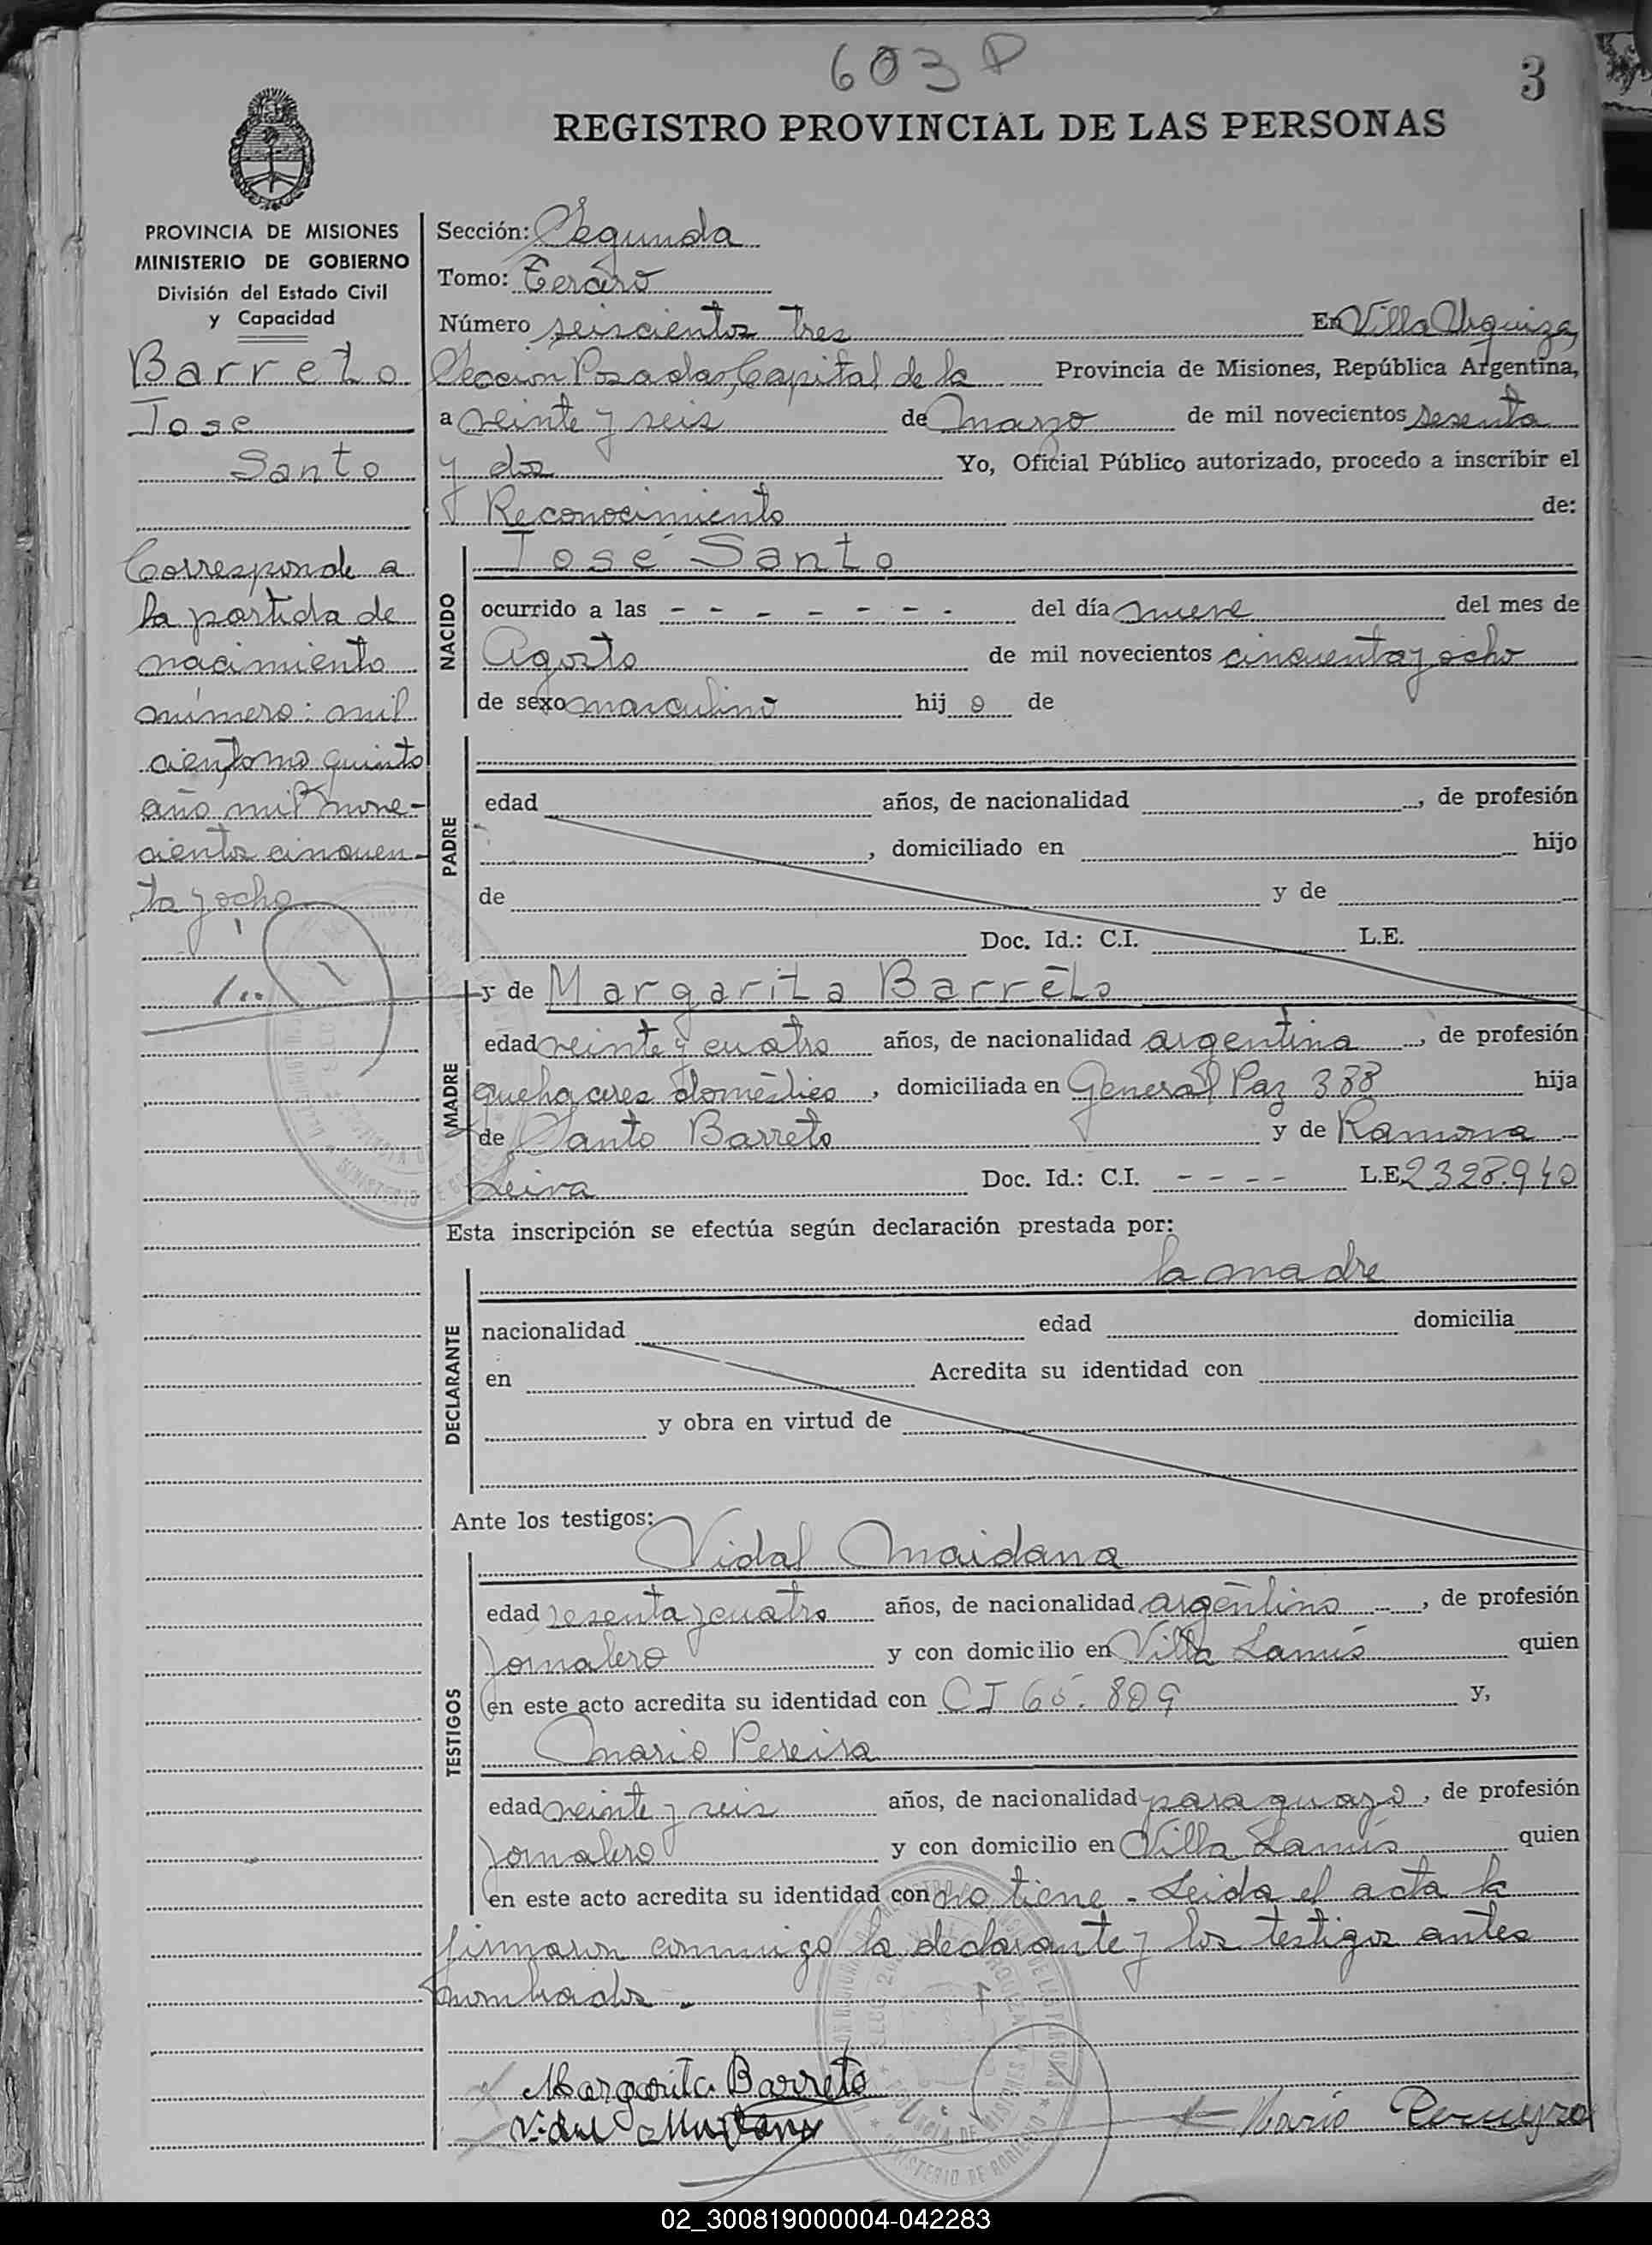 603 P
3
REGISTRO PROVINCIAL DE LAS PERSONAS
PROVINCIA DE MISIONES
MINISTERIO DE GOBIERNO
División del Estado Civil
y Capacidad
Barreto
Jose
Santo
Corresponde a
la partida de
nacimiento
número: mil
ciento quinto
año mil nove-
cientos cincuen-
ta y ocho
Sección: Segunda
Tomo: Tercero
Número seiscientos tres En Villa Urquiza
Sección Posadas, Capital de la Provincia de Misiones, República Argentina,
a veinte y seis de marzo de mil novecientos sesenta
y dos Yo, Oficial Público autorizado, procedo a inscribir el
Reconocimiento de:
NACIDO
José Santo
ocurrido a las - - - - - - - del día nueve del mes de
Agosto de mil novecientos cincuenta y ocho
de sexo masculino hij o de
PADRE
edad años, de nacionalidad , de profesión
, domiciliado en hijo
de y de
Doc. Id.: C.I. L.E.
MADRE
y de Margarita Barreto
edad veinte y cuatro años, de nacionalidad argentina , de profesión
quehaceres doméstico , domiciliada en General Paz 388 hija
de Santo Barreto y de Ramona
Leiva Doc. Id.: C.I. - - - - L.E. 2.328.940
Esta inscripción se efectúa según declaración prestada por:
la madre
DECLARANTE
nacionalidad edad domicilia
en Acredita su identidad con
y obra en virtud de
Ante los testigos:
TESTIGOS
Vidal Maidana
edad sesenta y cuatro años, de nacionalidad argentino , de profesión
Jornalero y con domicilio en Villa Lanús quien
en este acto acredita su identidad con CI 65.809 y,
Mario Pereira
edad veinte y seis años, de nacionalidad paraguayo , de profesión
Jornalero y con domicilio en Villa Lanús quien
en este acto acredita su identidad con no tiene - Leida el acta la
firmaron conmigo la declarante y los testigos antes
nombrados -
Margarita Barreto
Vidal
Mario
02_300819000004-042283